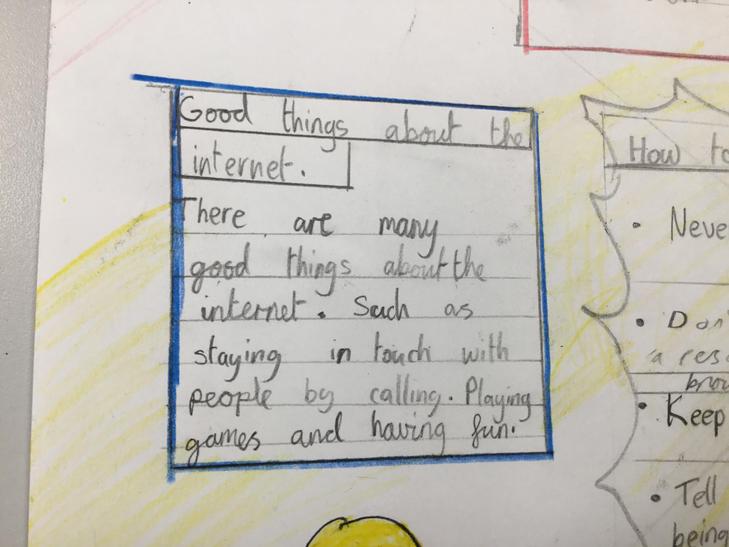 Good things about the
internet.
There are many
good things about the
internet. Such as
staying in touch with
people by calling. Playing
games and having fun.
How to
Neve
Don'
a res
brow
Keep
Tell
being